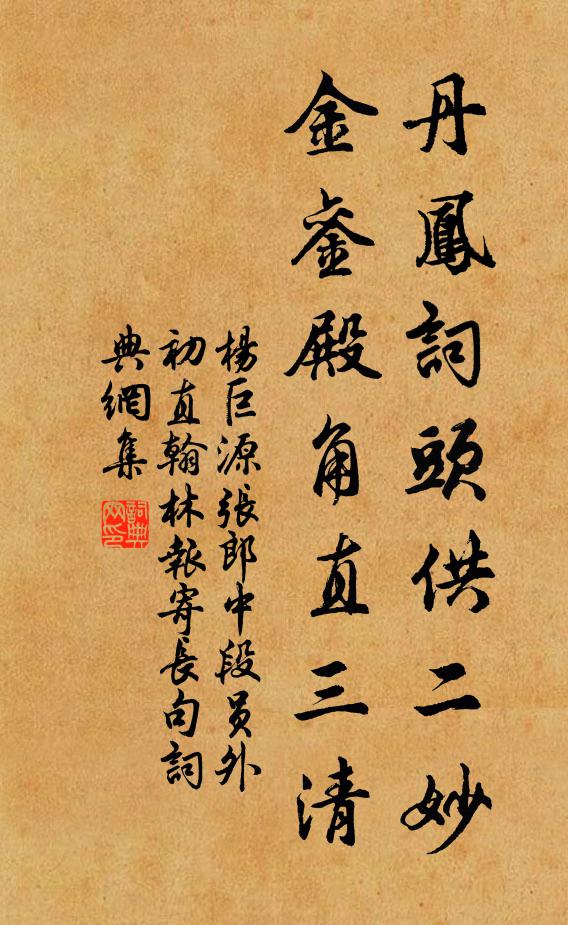 丹鳳詞頭供二妙
金鑾殿角直三清
楊巨源張郎中段員外
初直翰林報寄長句詞
典網集
詞典
网印